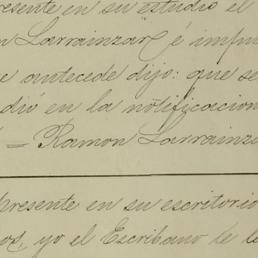 presente en su estudio el
Larrainzar é impu
e antecede dijo: que se
dió en la notificacion
= Ramon Larrainza
presente en su escritorio
os, yo el Escribano le le